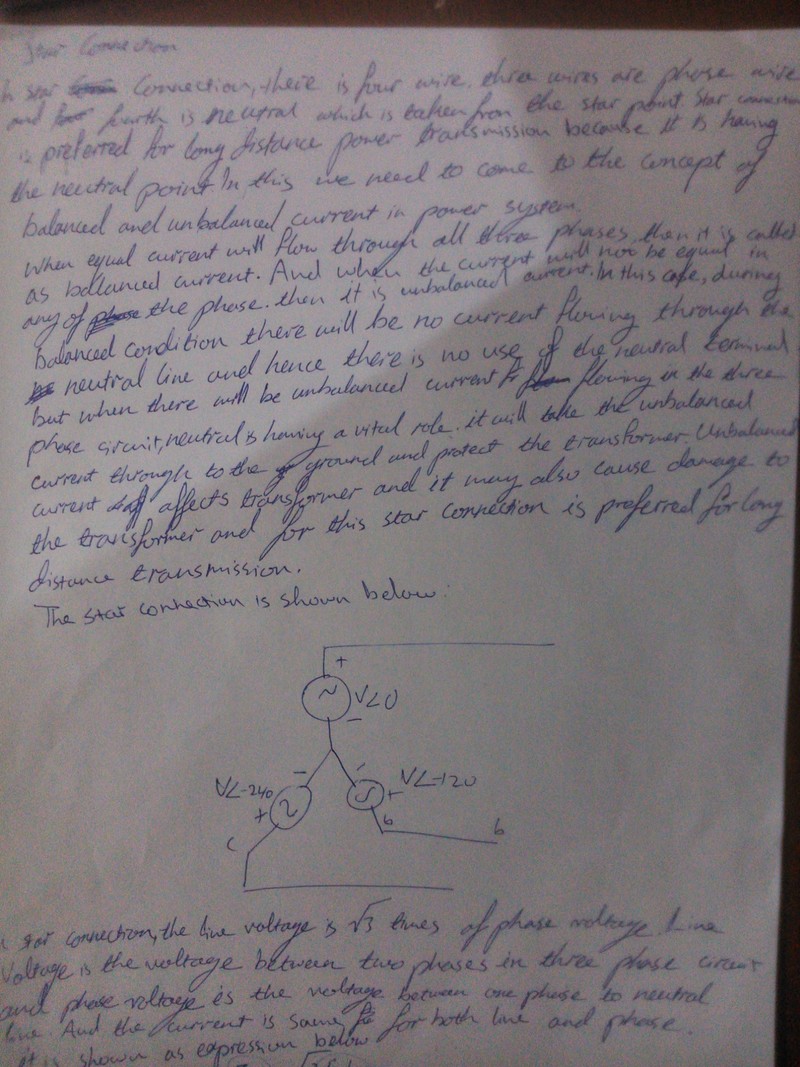 Star Connection
In star Connection, there is four wire. three wires are phase wire
and fourth is neutral which is taken from the star point. Star connection
is preferred for long distance power transmission because it is having
the neutral point. In this we need to come to the concept of
balanced and unbalanced current in power system.
when equal current will flow through all three phases, then it is called
as ballanced current. And when the current will not be equal in
any of the phase. then it is unbalanced current. In this case, during
balanced condition there will be no current flowing through the
neutral line and hence there is no use of the neutral terminal
but when there will be unbalanced current flowing in the three
phase circuit, neutral is having a vital role. it will take the unbalanced
current through to the ground and protect the transformer. Unbalanced
current affects transformer and it may also cause damage to
the transformer and for this star connection is preferred for long
distance transmission.
The star connection is shown below:
+
V∠0
−
V∠-240
−
−
V∠-120
+
+
c
b
b
star connection, the line voltage is √3 times of phase voltage. Line
Voltage is the voltage between two phases in three phase circuit
and phase voltage is the voltage between one phase to neutral
line. And the current is same for both line and phase.
it is shown as expression below